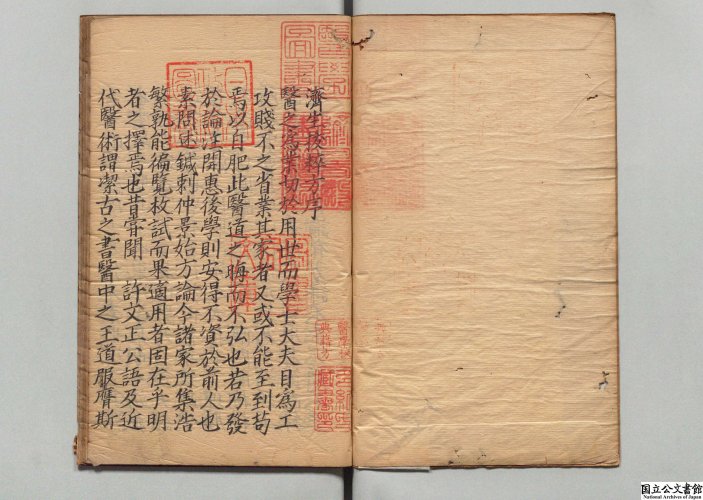 濟生拔粹方序
醫之為業切於用世而學士大夫目為工
攻賤不之省業其家者又或不能至到苟
焉以自肥此醫道之晦而不弘也若乃發
於論注開惠後學則安得不資於前人也
素問述鍼刺仲景始方論今諸家所集浩
繁孰能徧覽枚試而果適用者固在乎明
者之擇焉也昔甞聞 許文正公語及近
代醫術謂潔古之書醫中之王道服膺斯
国立公文書館
National Archives of Japan